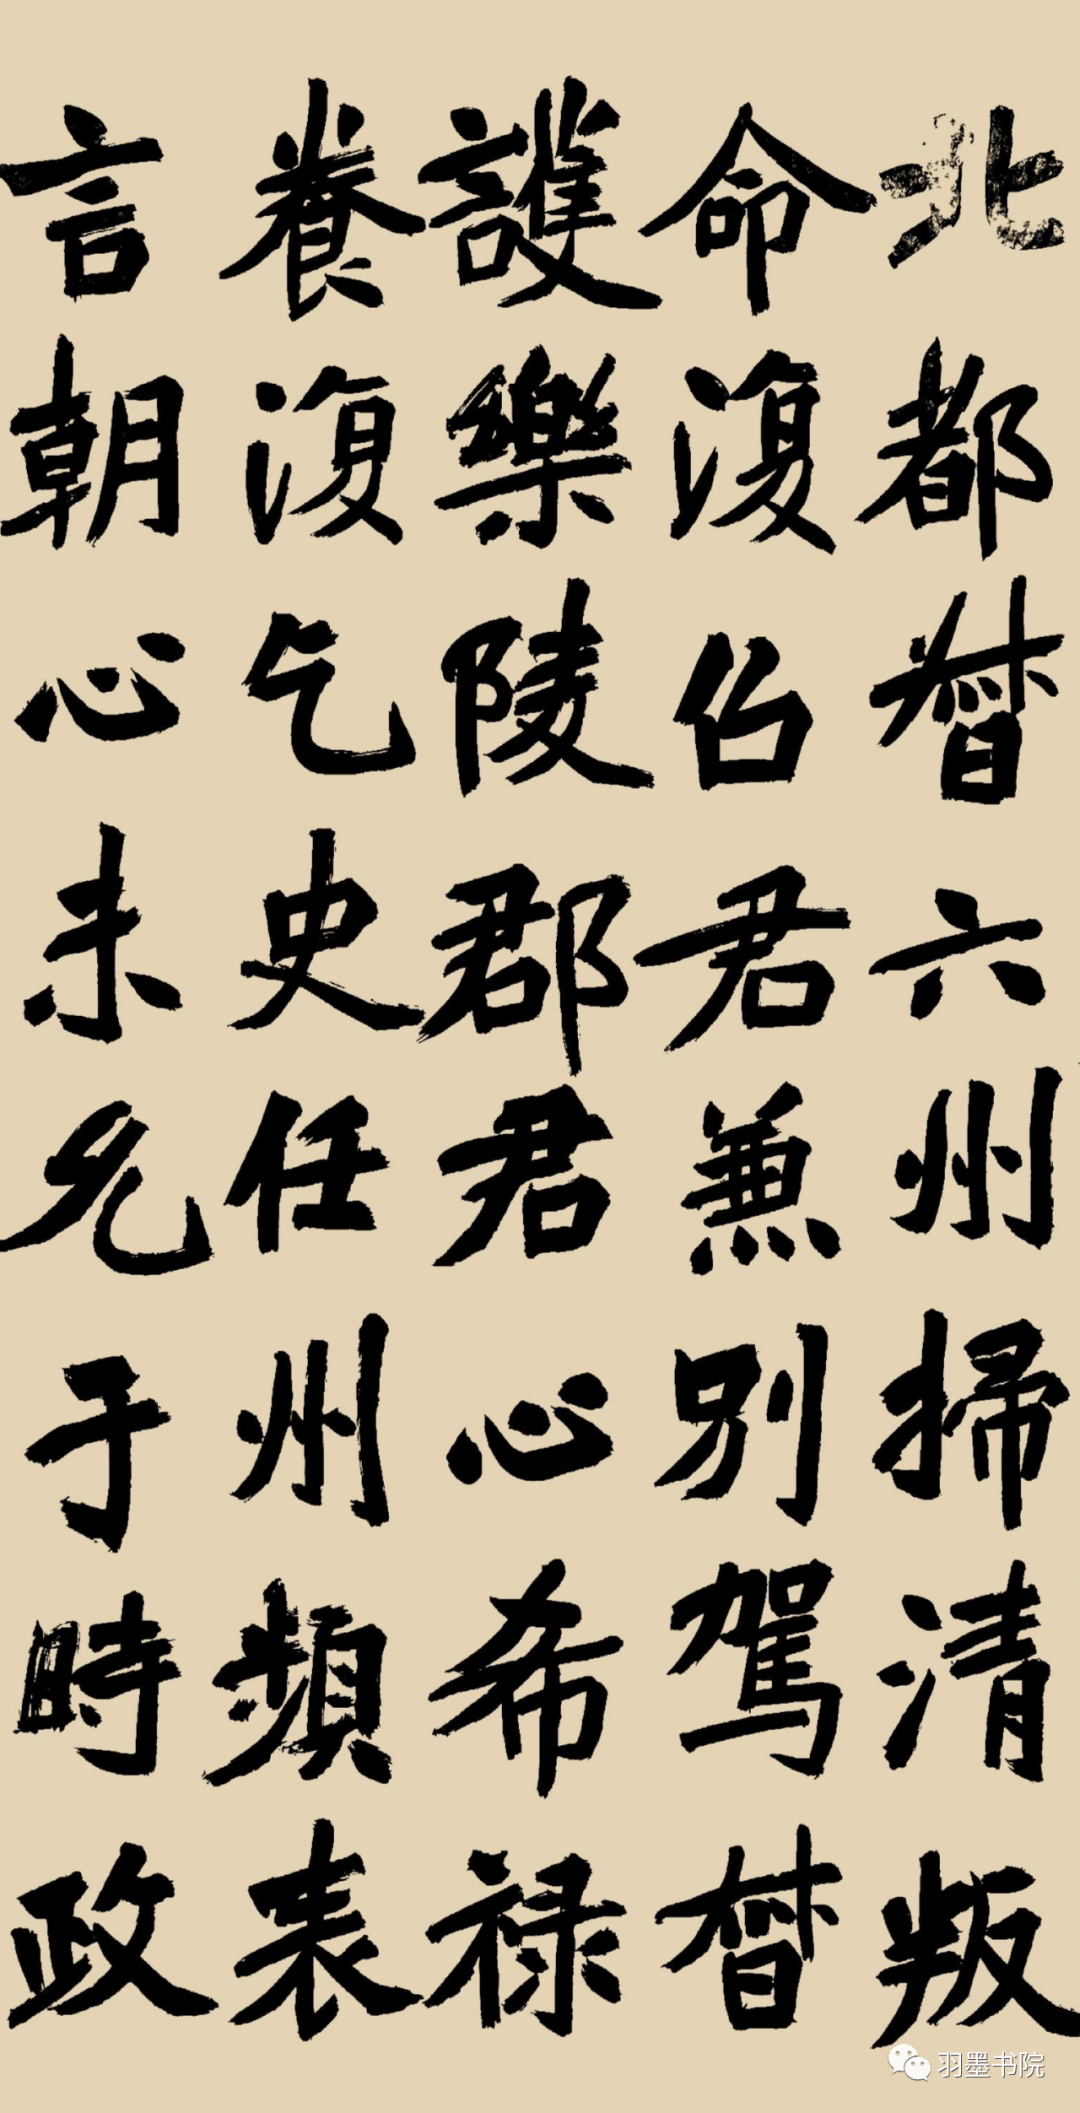 北都督六州掃清叛
命復召君兼別駕督
護樂陵郡君心希祿
養復乞史任州頻表
言朝心未允于時政
羽墨书院